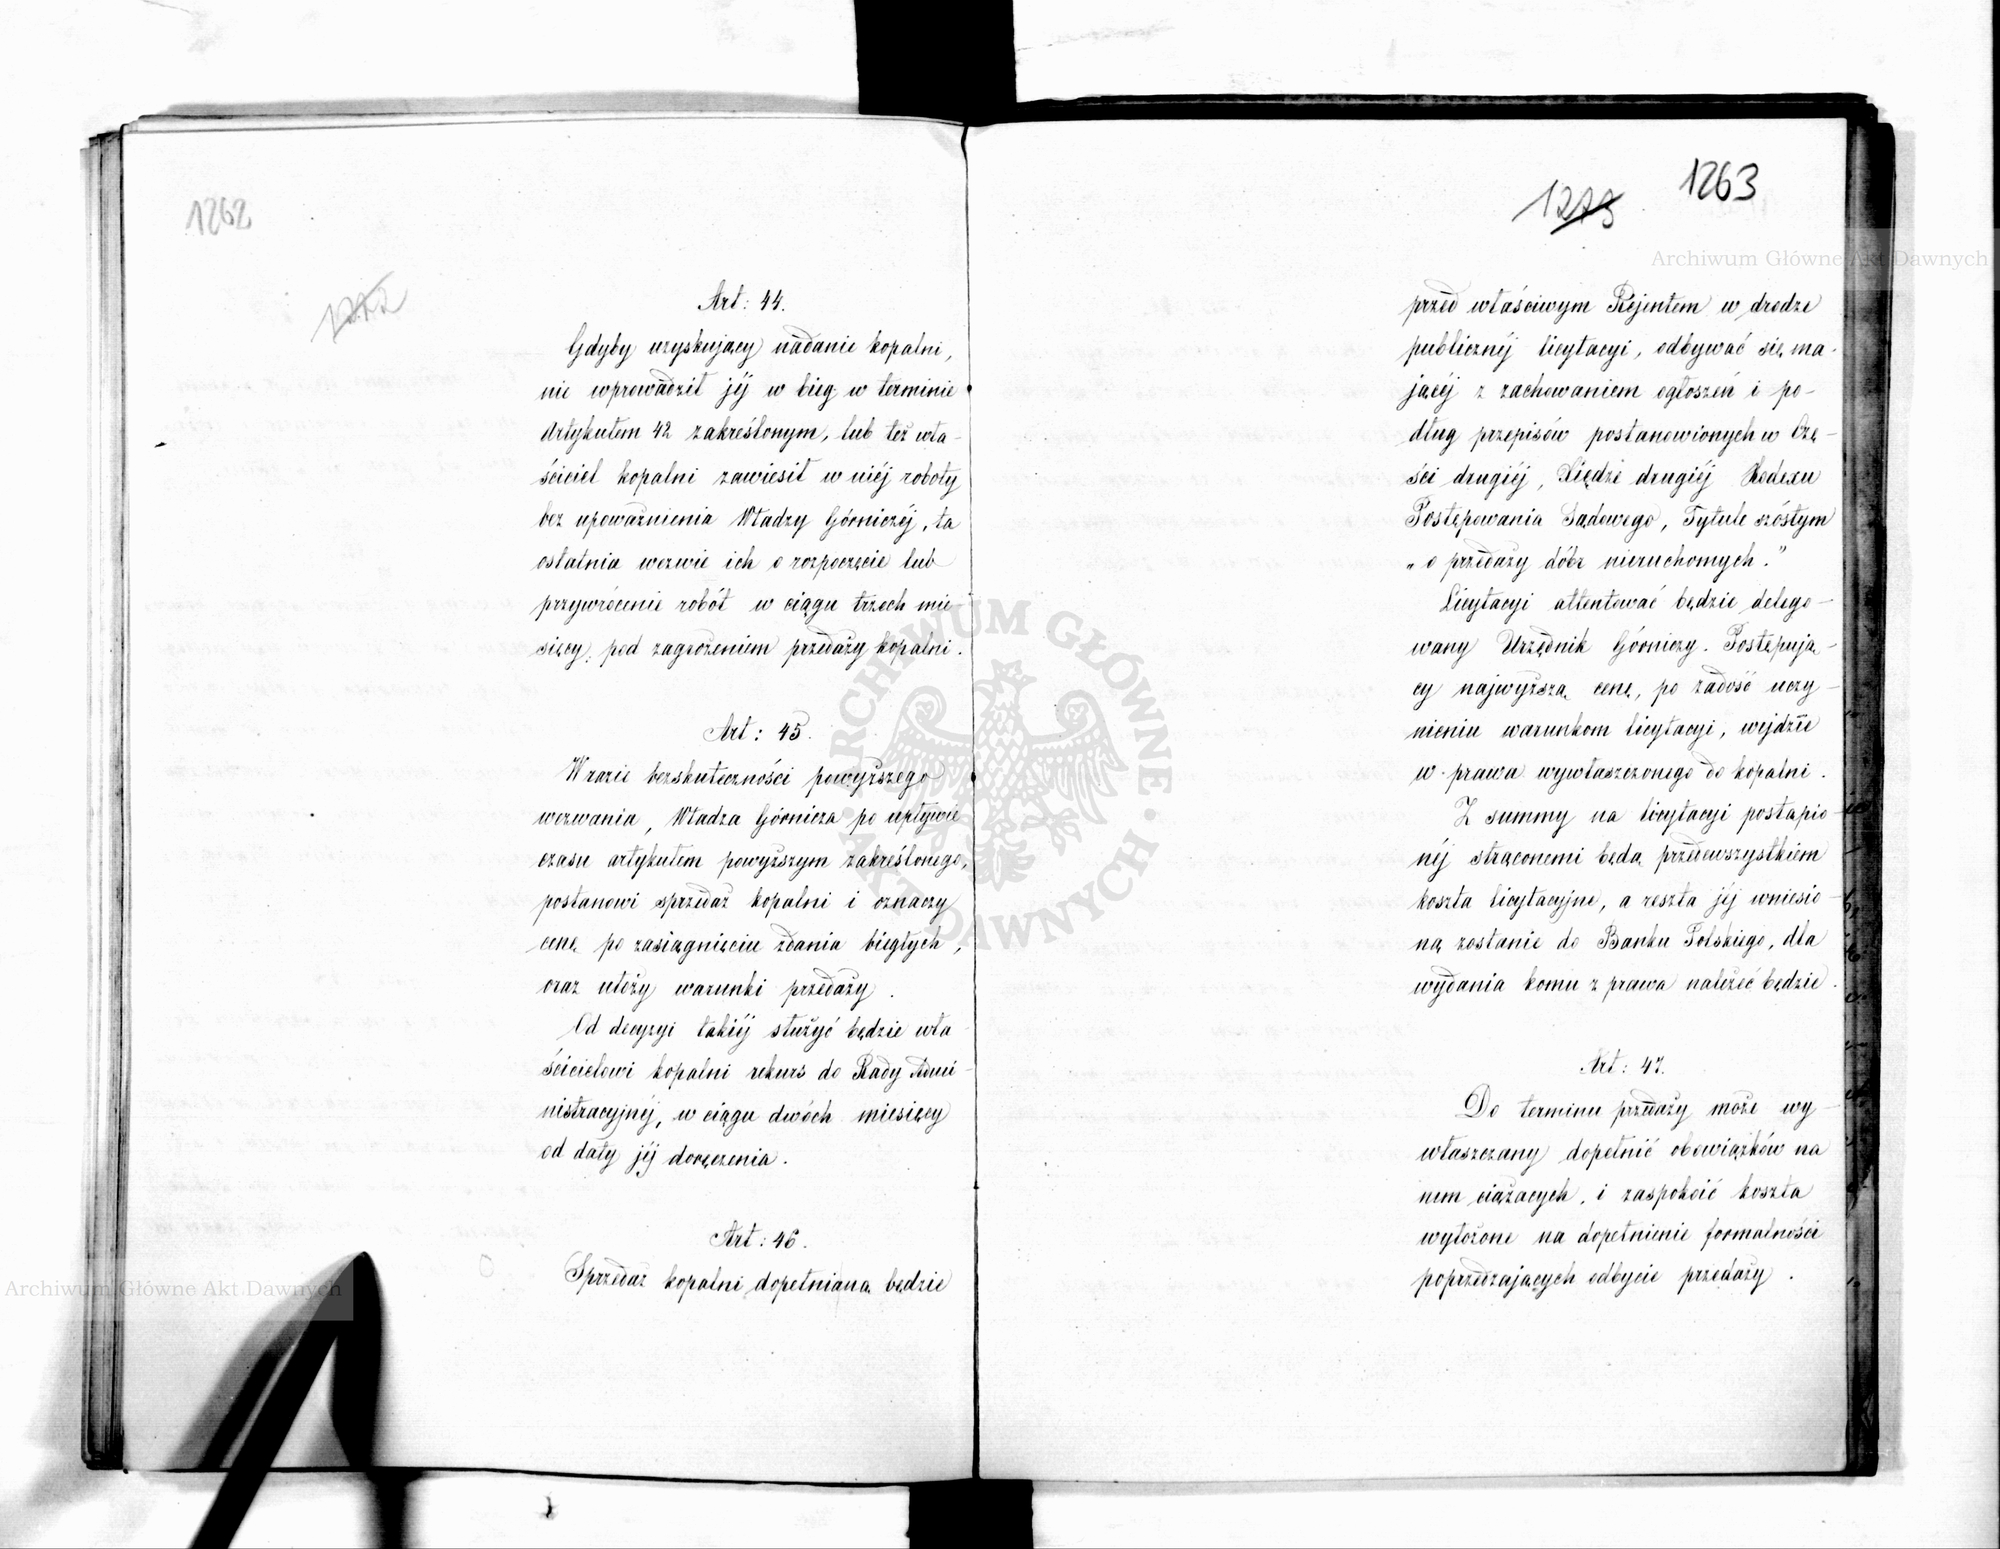 1262
1272
Art: 44.
Gdyby uzyskujący nadanie kopalni,
nie wprowadził jéj w bieg w terminie
Artykułem 42 zakreślonym, lub też wła-
ściciel kopalni zawiesił w niéj roboty
bez upoważnienia Władzy Górniczéj, ta
ostatnia wezwie ich o rozpoczęcie lub
przywrócenie robót w ciągu trzech mie-
sięcy, pod zagrożeniem przedaży kopalni.
Art: 45.
W razie bezskuteczności powyższego
wezwania, Władza Górnicza po upływie
czasu artykułem powyższym zakreślonego,
postanowi sprzedaż kopalni i oznaczy
cenę po zasiągnięciu zdania biegłych,
oraz ułoży warunki przedaży.
Od decyzyi takiéj służyć będzie wła-
ścicielowi kopalni rekurs do Rady Admi-
nistracyjnéj, w ciągu dwóch miesięcy
od daty jéj doręczenia.
Art: 46.
Sprzedaż kopalni dopełnianą będzie
1273 1263
przed właściwym Rejentem w drodze
publicznéj licytacyi, odbywać się ma-
jącéj z zachowaniem ogłoszeń i po-
dług przepisów postanowionych w Czę-
ści drugiéj, Księdze drugiéj Kodexu
Postępowania Sądowego, Tytule szóstym
„o przedaży dóbr nieruchomych."
Licytacyi attentować będzie delego-
wany Urzędnik Górniczy. Postępują-
cy najwyższą cenę, po zadość uczy-
nieniu warunkom licytacyi, wejdzie
w prawa wywłaszczonego do kopalni.
Z summy na licytacyi postąpio-
néj strąconemi będą przedewszystkiem
koszta licytacyjne, a reszta jéj wniesio-
ną zostanie do Banku Polskiego, dla
wydania komu z prawa należeć będzie.
Art: 47.
Do terminu przedaży może wy-
właszczany dopełnić obowiązków na
nim ciążących, i zaspokoić koszta
wyłożone na dopełnienie formalności
poprzedzających odbycie przedaży.
Archiwum Główne Akt Dawnych
Archiwum Główne Akt Dawnych
ARCHIWUM GŁÓWNE AKT DAWNYCH